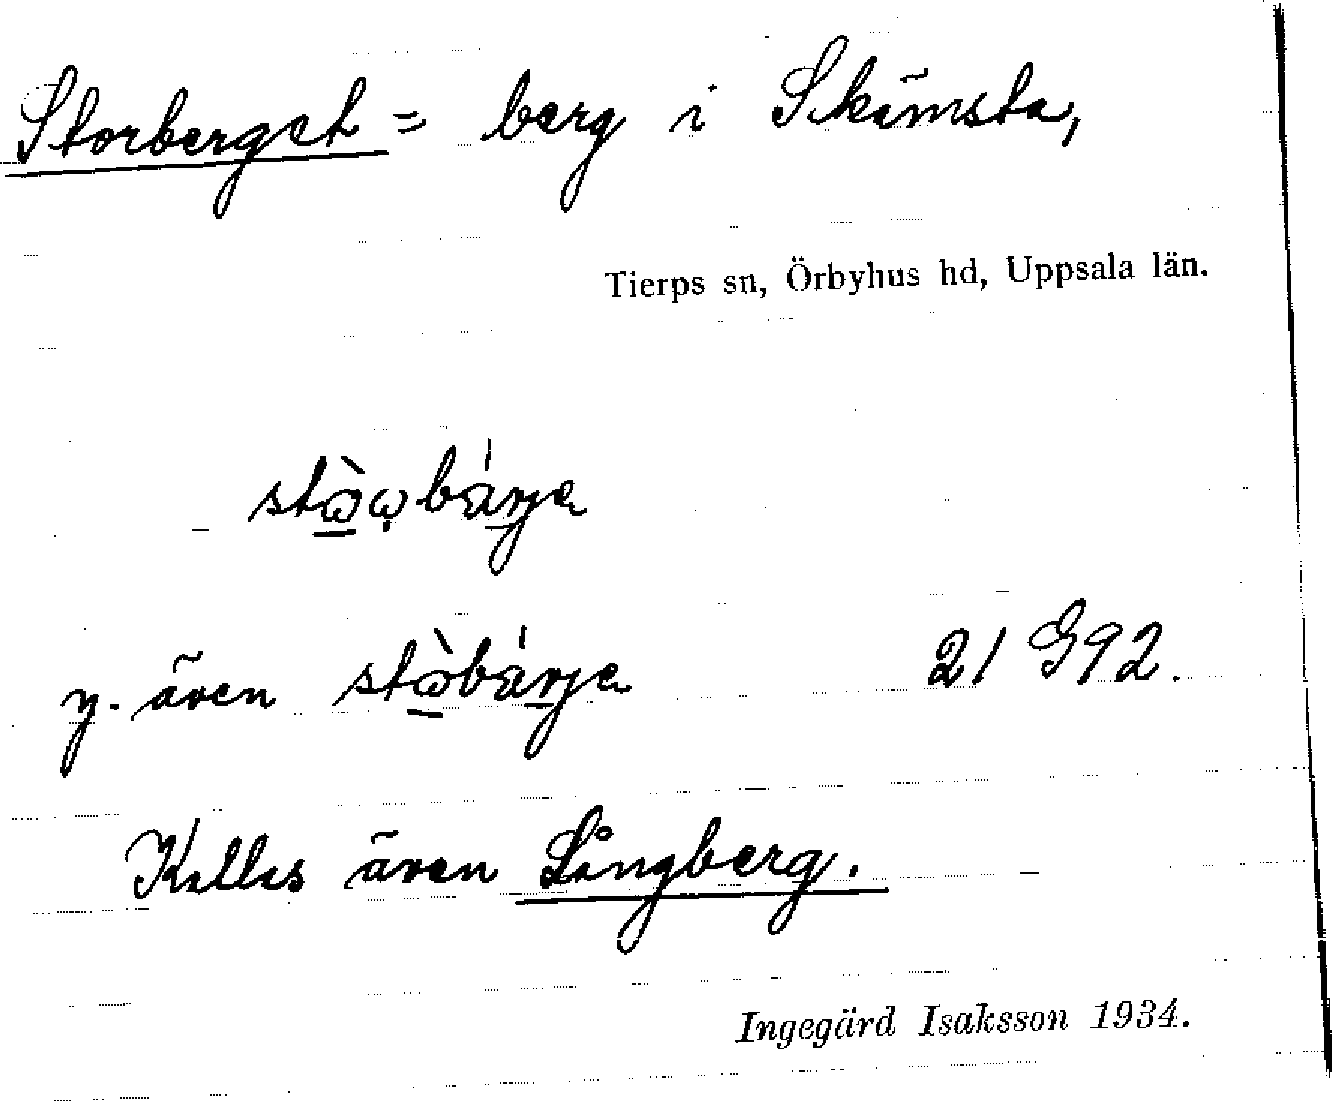 Storberget = berg i Skämsta,
Tierps sn, Örbyhus hd, Uppsala län.
stɷ̀ɷ̣bárje
y. även stɷ̀bárje 21 G92.
Kallas även Långberg.
Ingegärd Isaksson 1934.